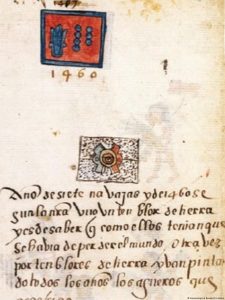 1460
Año de siete navajas y de 1460 se
gun la nra vuo vn tenblor de tierra
y es de saber q como ellos tenian que
se havia de perder el mundo otra vez
por tenblores de tierra yvan pintan
do todos los años los agueros que